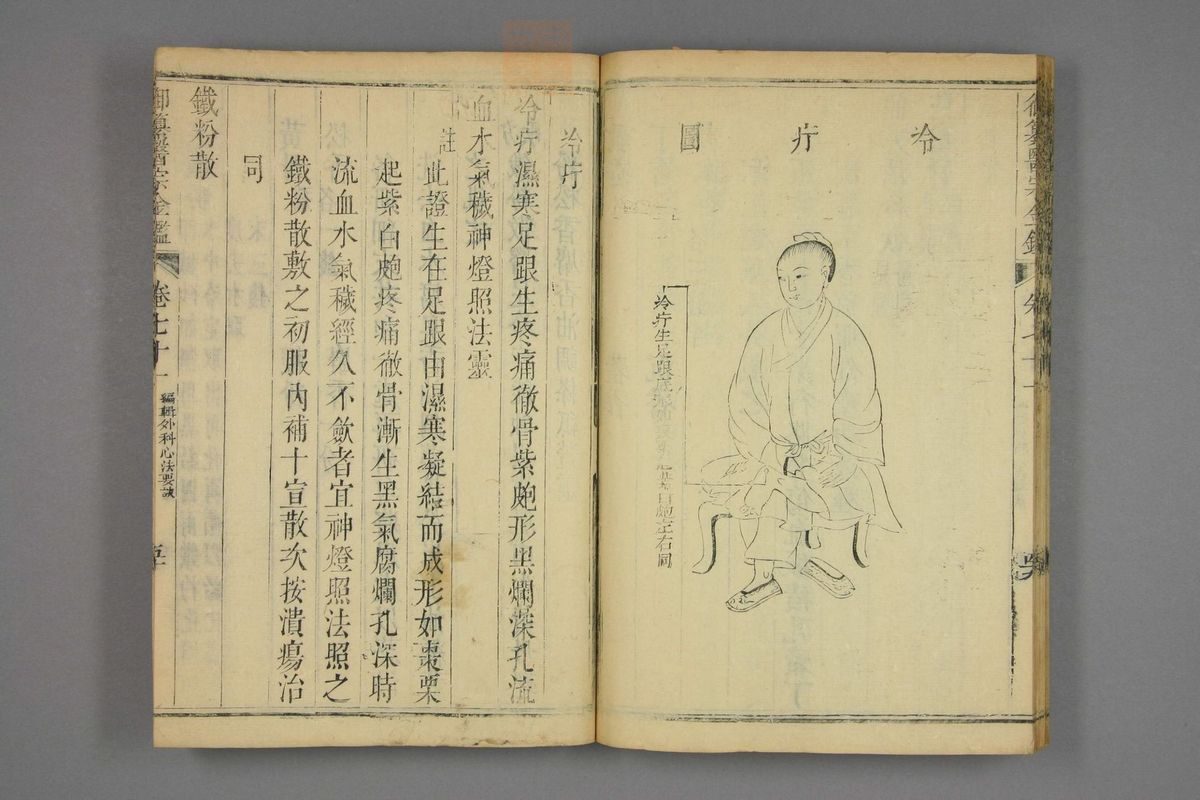 冷疔圖
冷疔生足跟底
白皰左右同
冷疔
冷疔濕寒足跟生疼痛徹骨紫皰形黑爛深孔流
血水氣穢神燈照法靈
註此證生在足跟由濕寒凝結而成形如棗栗
起紫白皰疼痛徹骨漸生黑氣腐爛孔深時
流血水氣穢經久不斂者宜神燈照法照之
鐵粉散敷之初服內補十宣散次按潰瘍治
同
鐵粉散
御纂醫宗金鑑
卷七十一
編輯外科心法要訣